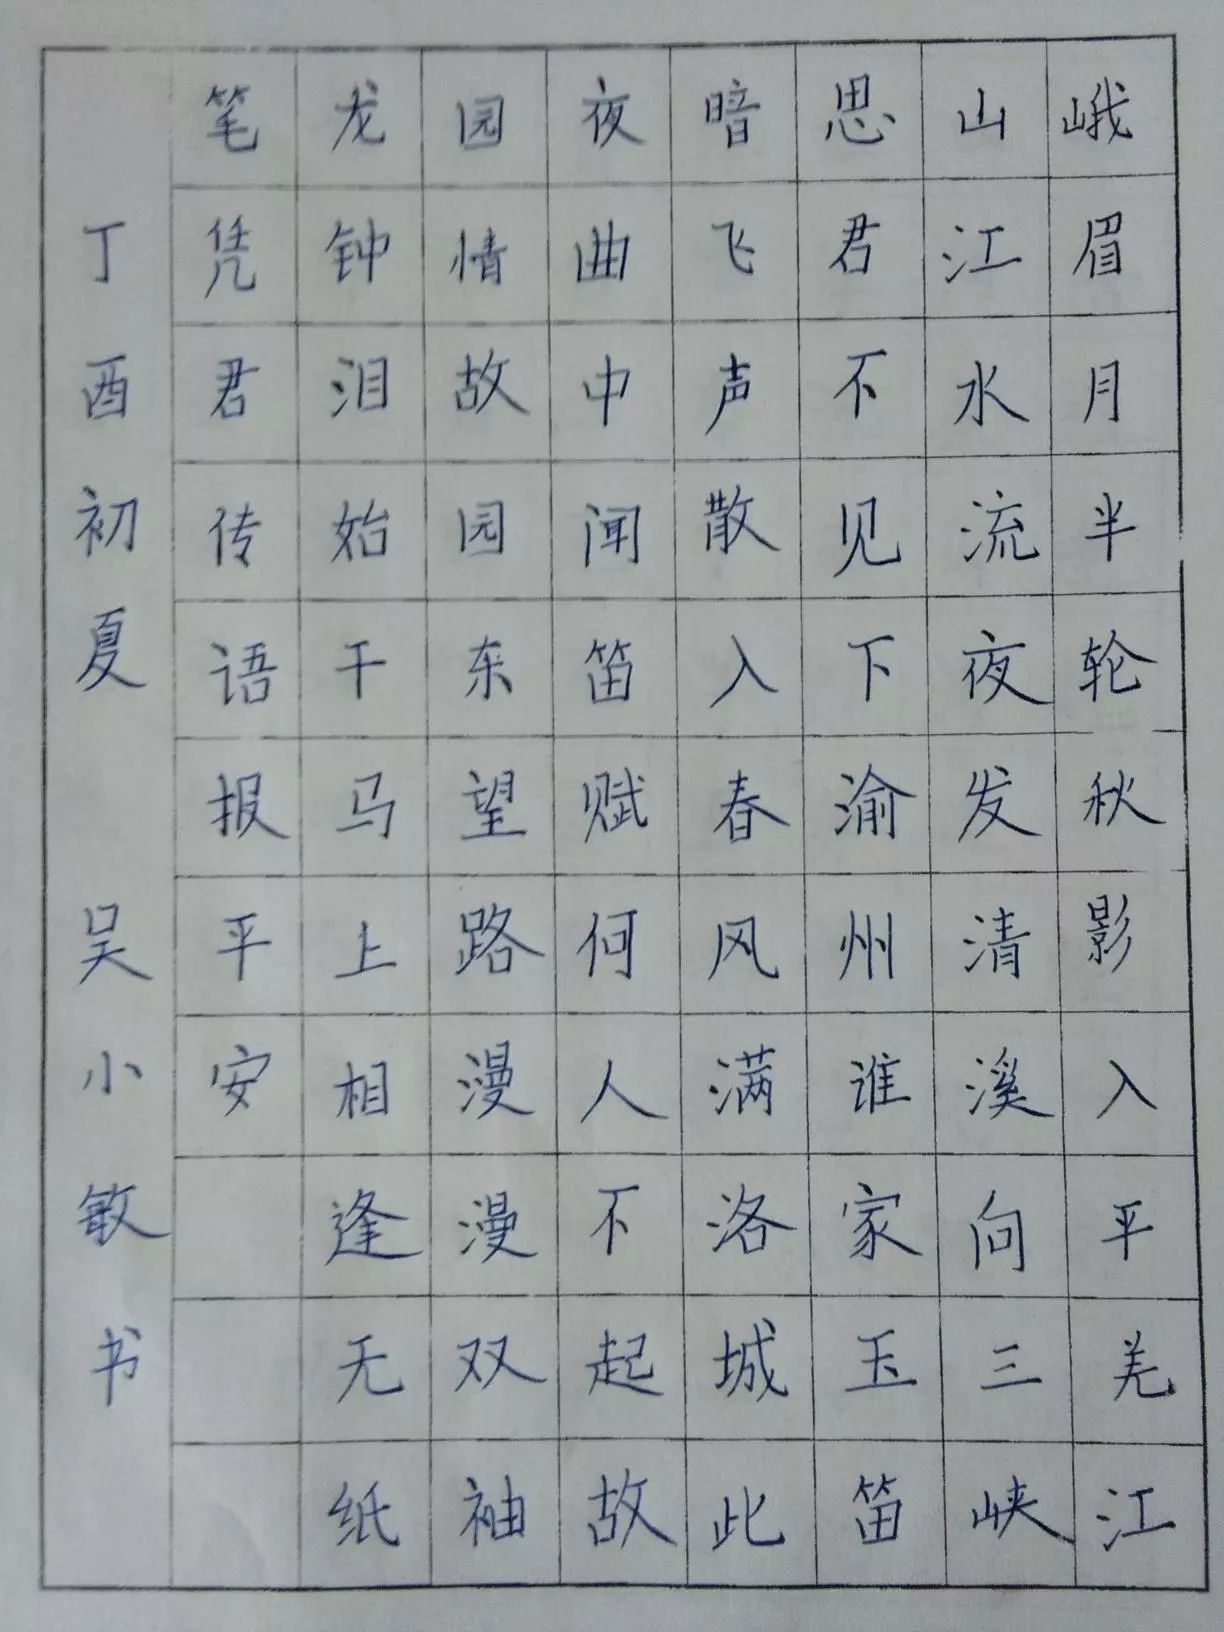 峨眉月半轮秋影入平羌江
山江水流夜发清溪向三峡
思君不见下渝州谁家玉笛
暗飞声散入春风满洛城此
夜曲中闻笛赋何人不起故
园情故园东望路漫漫双袖
龙钟泪始干马上相逢无纸
笔凭君传语报平安
丁酉初夏 吴小敏书